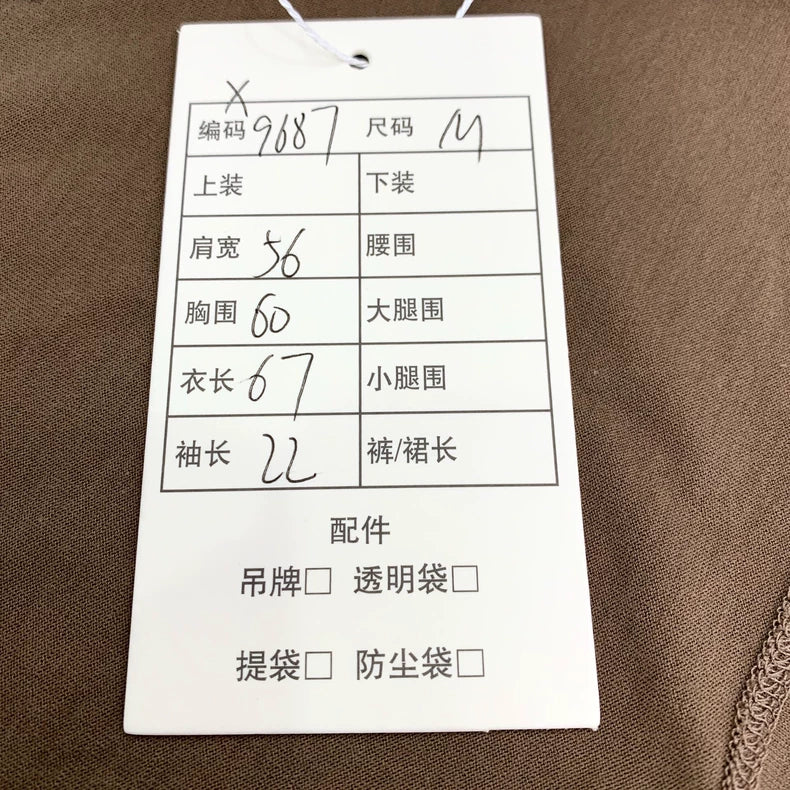 X
编码 9687 尺码 M
上装 下装
肩宽 56 腰围
胸围 60 大腿围
衣长 67 小腿围
袖长 22 裤/裙长
配件
吊牌□ 透明袋□
提袋□ 防尘袋□